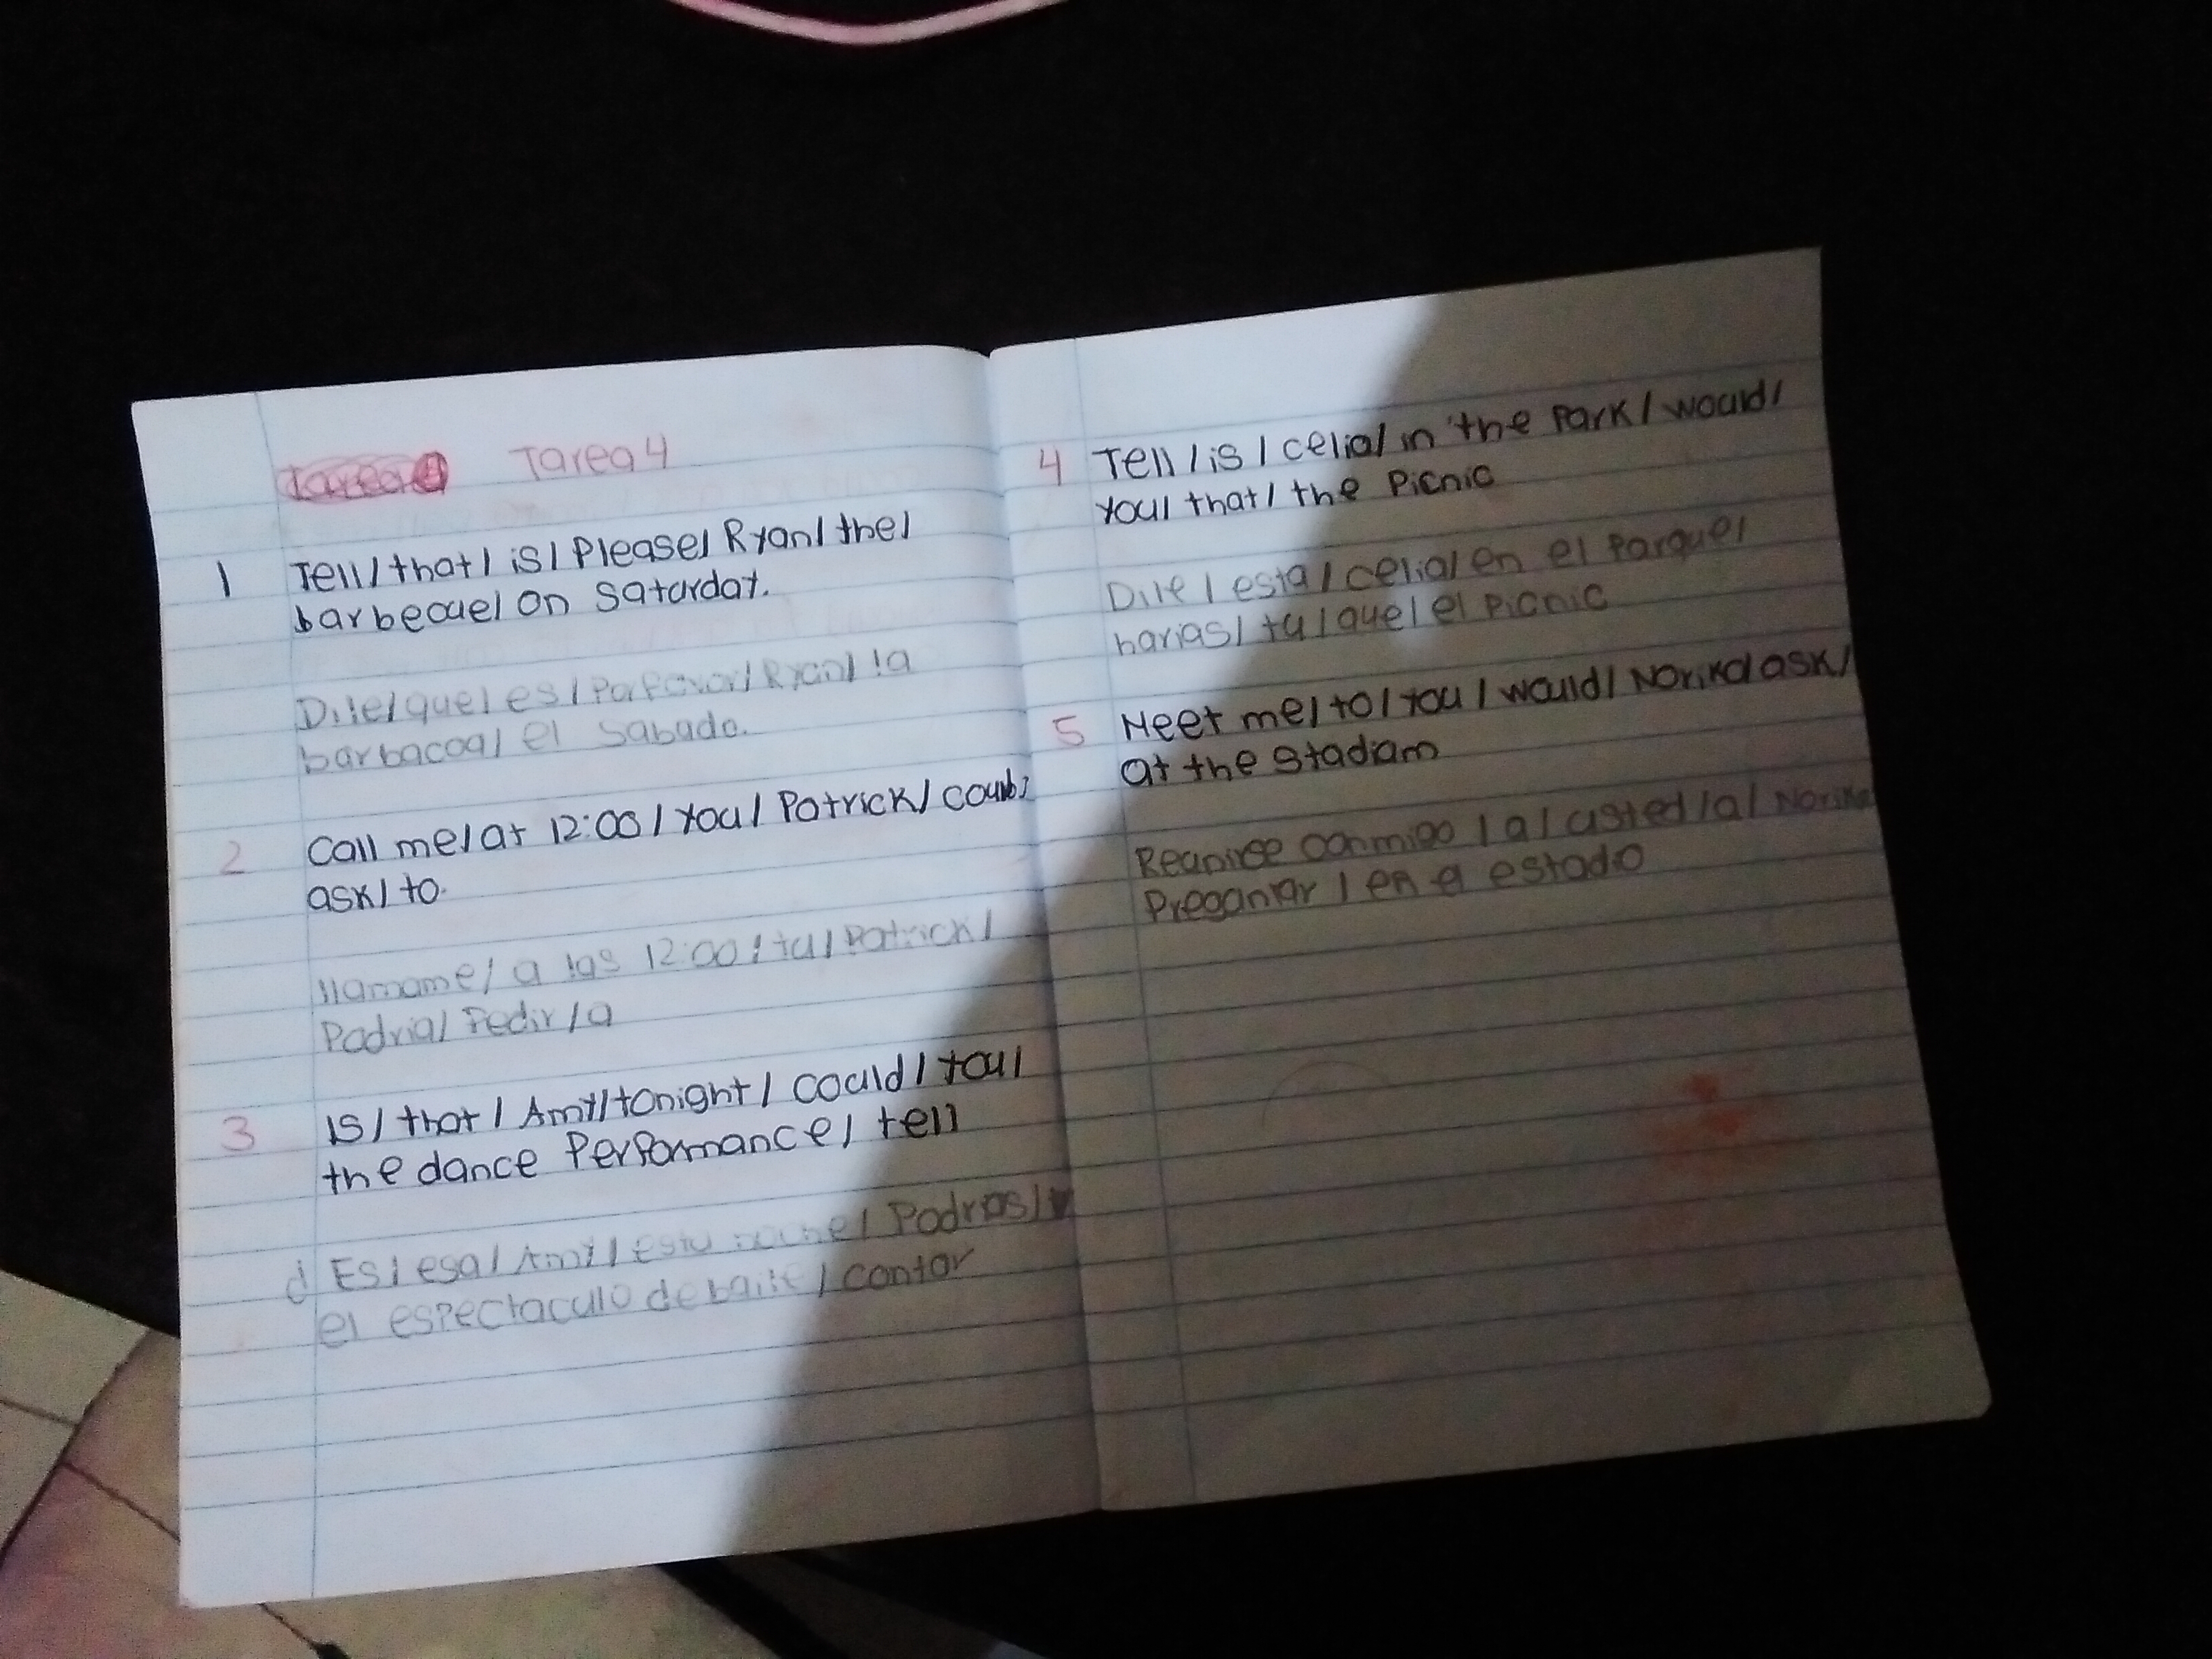 Tarea 4
1 Tell/that/is/Please/Ryan/the/
barbecue/on Saturday.
Dile/que/es/Porfavor/Ryan/la
barbacoa/el sabado.
2 Call me/at 12:00/you/Patrick/could/
ask/to.
llamame/a las 12:00/tu/Patrick/
Podria/Pedir/a
3 IS/that/Amy/tonight/could/you/
the dance Performance/tell
d Es/esa/Amy/esta noche/Podrias/
el espectaculo de baile/contar
4 Tell/is/celia/in the Park/would/
you/that/the Picnic
Dile/esta/celia/en el Parque/
harias/tu/que/el Picnic
5 Meet me/to/you/would/Noriko/ask/
at the stadium
Reunirse conmigo/a/usted/a/Noriko
Preguntar/en el estadio